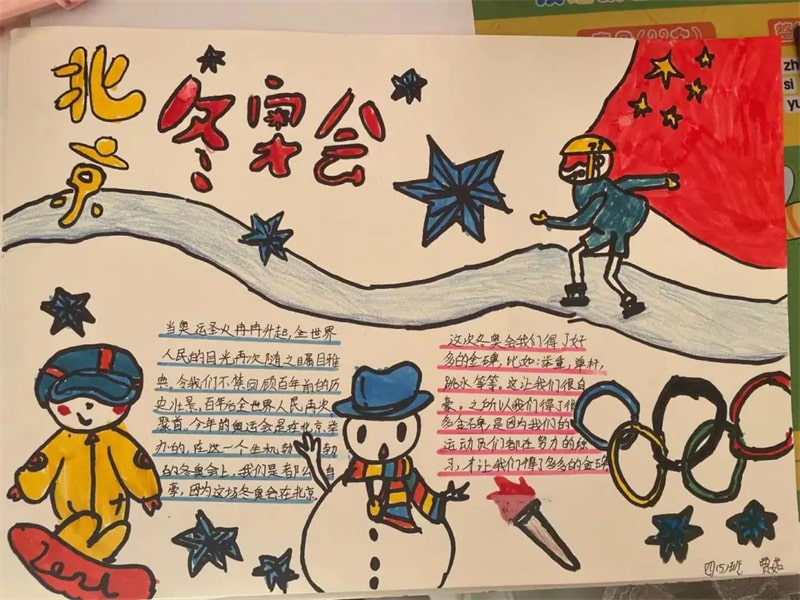 北京
冬奥会
当奥运圣火冉冉升起，全世界
人民的目光，再次随之瞩目雅
典，令我们不禁回顾百年前的历
史壮景，百年后全世界人民再次
聚首，今年的奥运会是在北京举
办的，在这一个生机勃勃
的冬奥会上，我们是都
豪，因为这场冬奥会在北京
这次冬奥会我们得了好
多的金牌，比如：举重，单杆，
跳水等等，这让我们很自
豪。之所以我们得了很
多金牌，是因为我们的
运动员们都在努力的练
习，才让我们得了多多的金牌
四(5)班
zh
si
yu